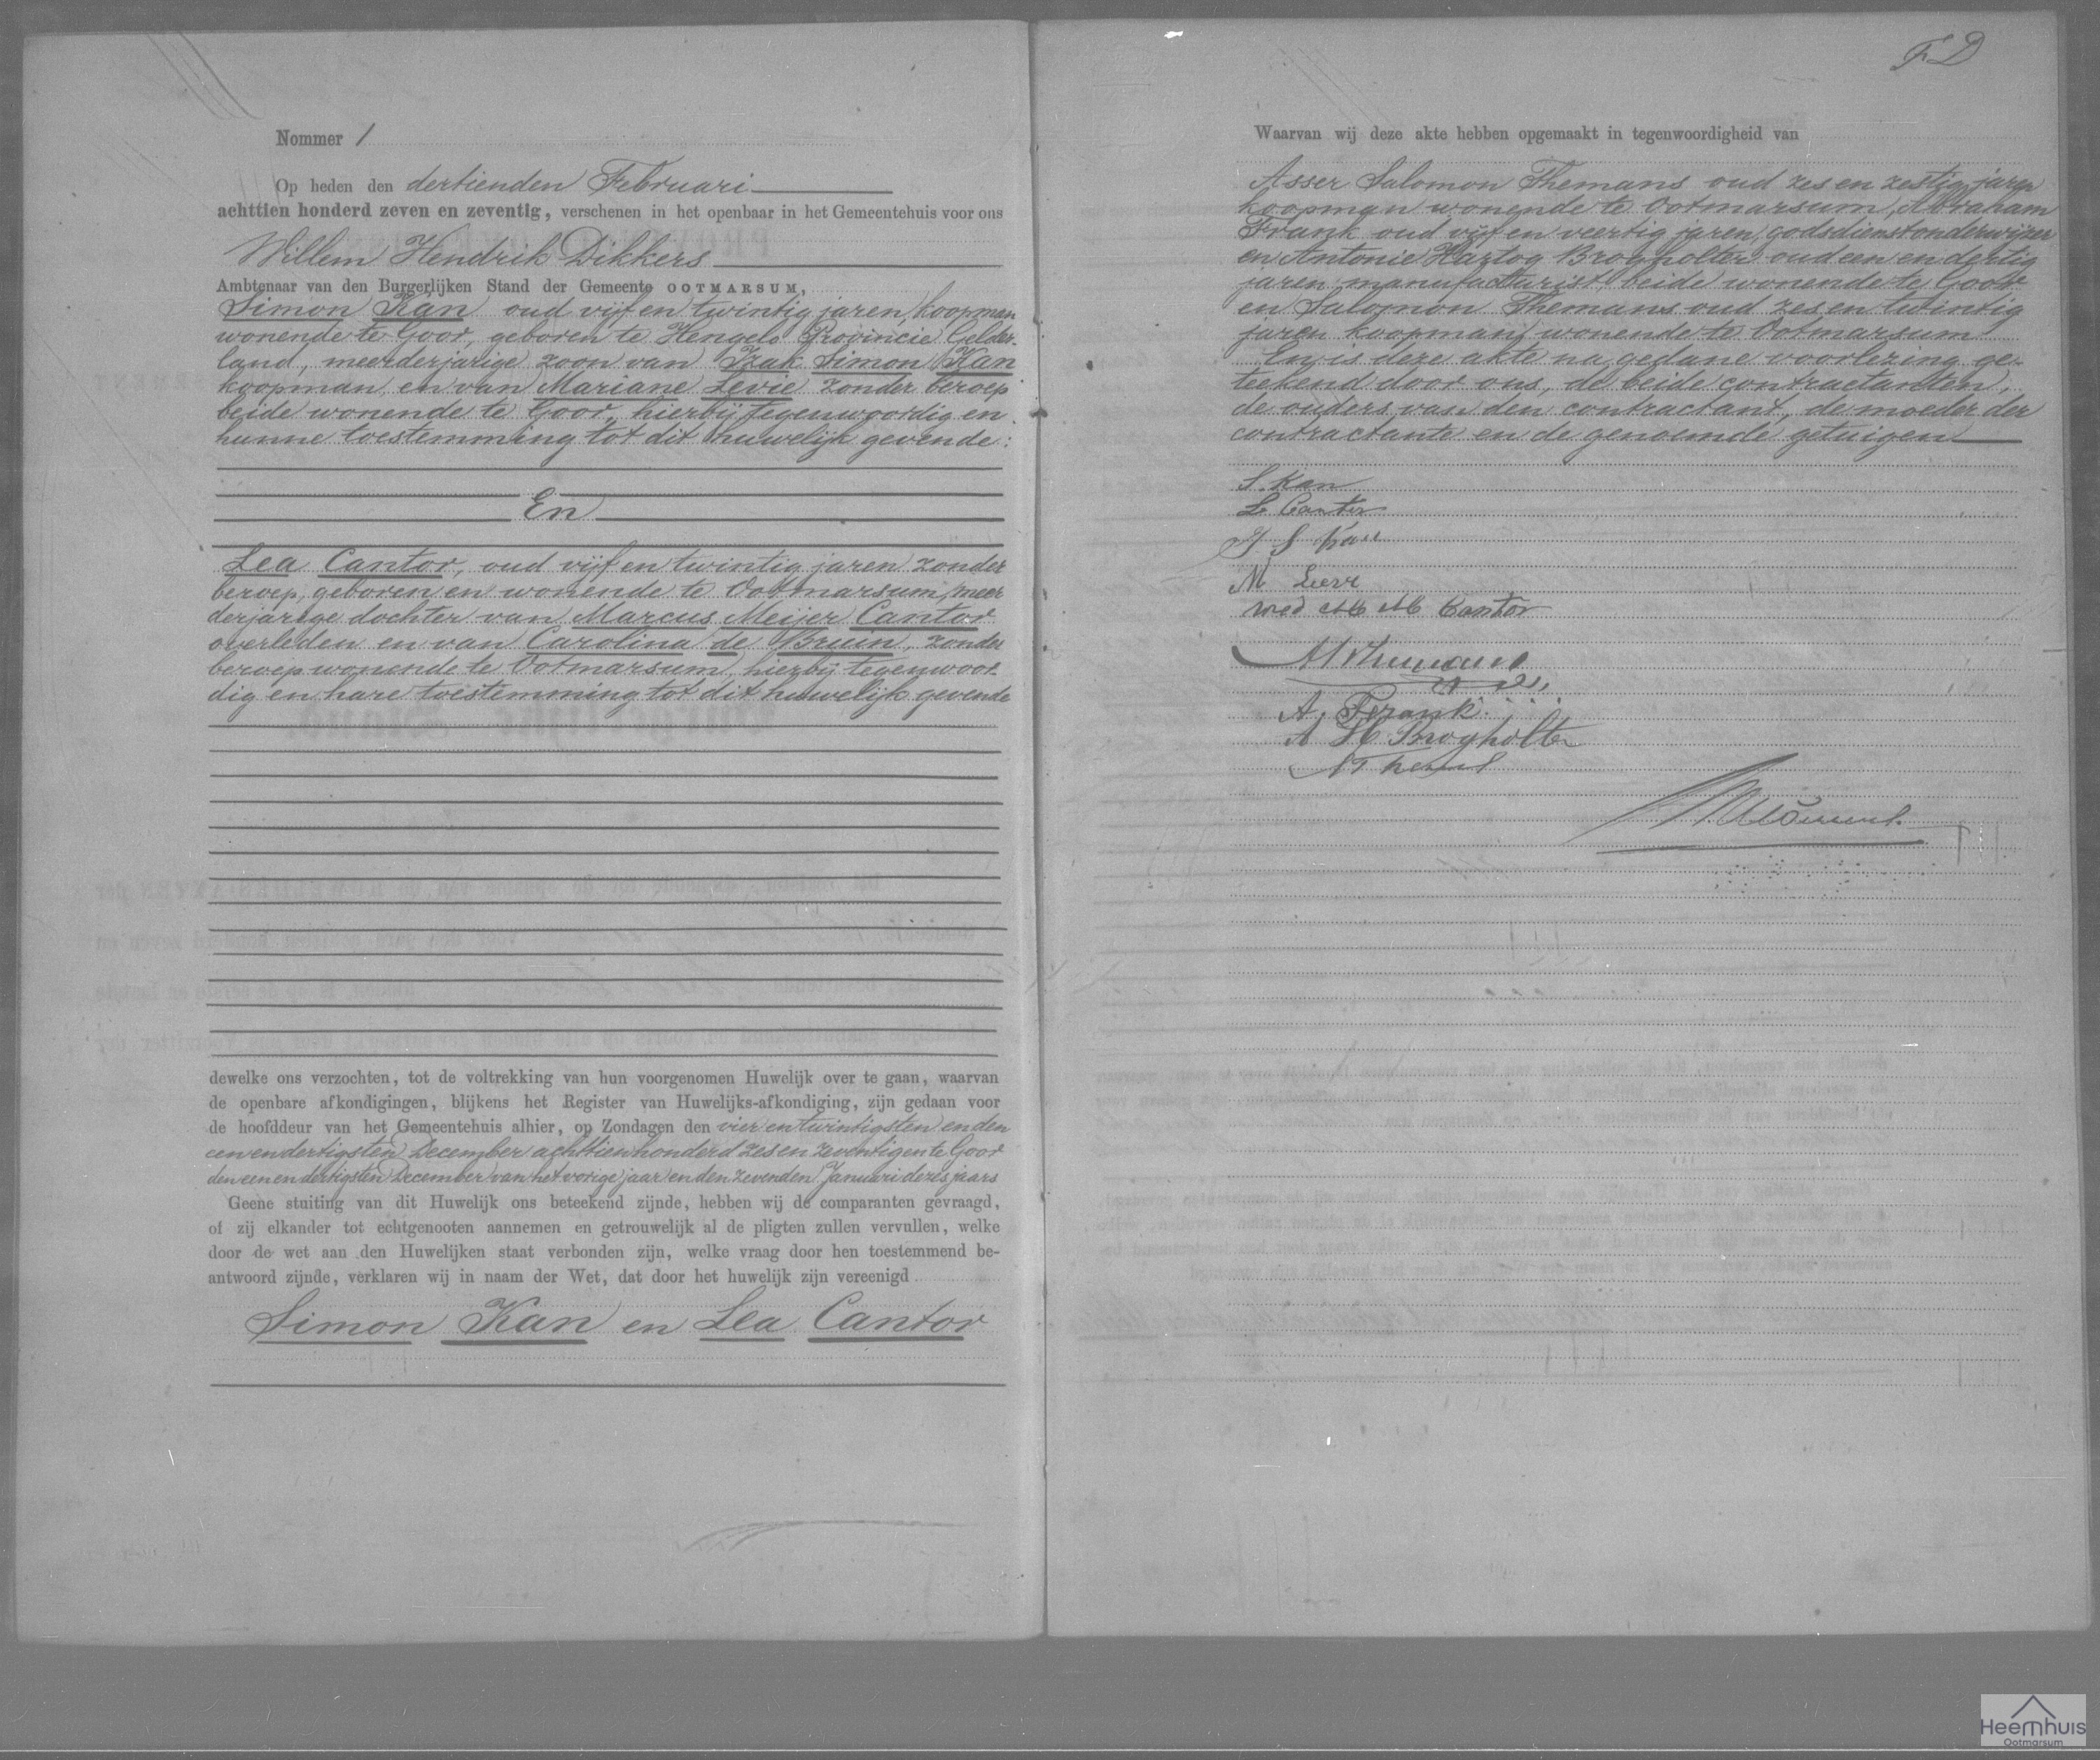 Nommer 1
Op heden den dertienden Februari
achttien honderd zeven en zeventig, verschenen in het openbaar in het Gemeentehuis voor ons
Willem Hendrik Dikkers
Ambtenaar van den Burgerlijken Stand der Gemeente OOTMARSUM,
Simon Kan oud vijf en twintig jaren, koopman
wonende te Goor, geboren te Hengelo Provincie Gelder-
land, meerderjarige zoon van Izak Simon Kan
koopman en van Mariane Levie zonder beroep
beide wonende te Goor, hierbij tegenwoordig en
hunne toestemming tot dit huwelijk gevende:
En
Lea Cantor, oud vijf en twintig jaren zonder
beroep, geboren en wonende te Ootmarsum, meer
derjarige dochter van Marcus Meijer Cantor
overleden en van Carolina de Bruin, zonder
beroep wonende te Ootmarsum, hierbij tegenwoor-
dig en hare toestemming tot dit huwelijk gevende
dewelke ons verzochten, tot de voltrekking van hun voorgenomen Huwelijk over te gaan, waarvan
de openbare afkondigingen, blijkens het Register van Huwelijks-afkondiging, zijn gedaan voor
de hoofddeur van het Gemeentehuis alhier, op Zondagen den vier en twintigsten en den
een en dertigsten December achttienhonderd zes en zeventig en te Goor
den een en dertigsten December van het vorige jaar en den zevenden Januari dezes jaars
Geene stuiting van dit Huwelijk ons beteekend zijnde, hebben wij de comparanten gevraagd,
of zij elkander tot echtgenooten aannemen en getrouwelijk al de pligten zullen vervullen, welke
door de wet aan den Huwelijken staat verbonden zijn, welke vraag door hen toestemmend be-
antwoord zijnde, verklaren wij in naam der Wet, dat door het huwelijk zijn vereenigd
Simon Kan en Lea Cantor
FD
Waarvan wij deze akte hebben opgemaakt in tegenwoordigheid van
Asser Salomon Themans oud zes en zestig jaren
koopman wonende te Ootmarsum, Abraham
Frank oud vijf en veertig jaren, godsdienstonderwijzer
en Antonie Hartog Brogholter oud een en dertig
jaren, manufacturist beide wonende te Goor
en Salomon Themans oud zes en twintig
jaren koopman, wonende te Ootmarsum
En is deze akte na gedane voorlezing ge-
teekend door ons, de beide contractanten,
de ouders van den contractant, de moeder der
contractante en de genoemde getuigen
S. Kan
L Cantor
I S Kan
M Levie
Wed M M Cantor
A. Frank
A H Brogholter
Heemhuis
Ootmarsum